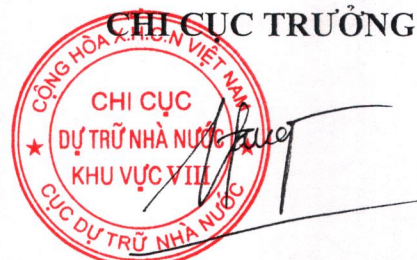 CHI CỤC TRƯỞNG
CỘNG HÒA X.H.C.N VIỆT NAM
CHI CỤC
DỰ TRỮ NHÀ NƯỚC
KHU VỰC VIII
CỤC DỰ TRỮ NHÀ NƯỚC